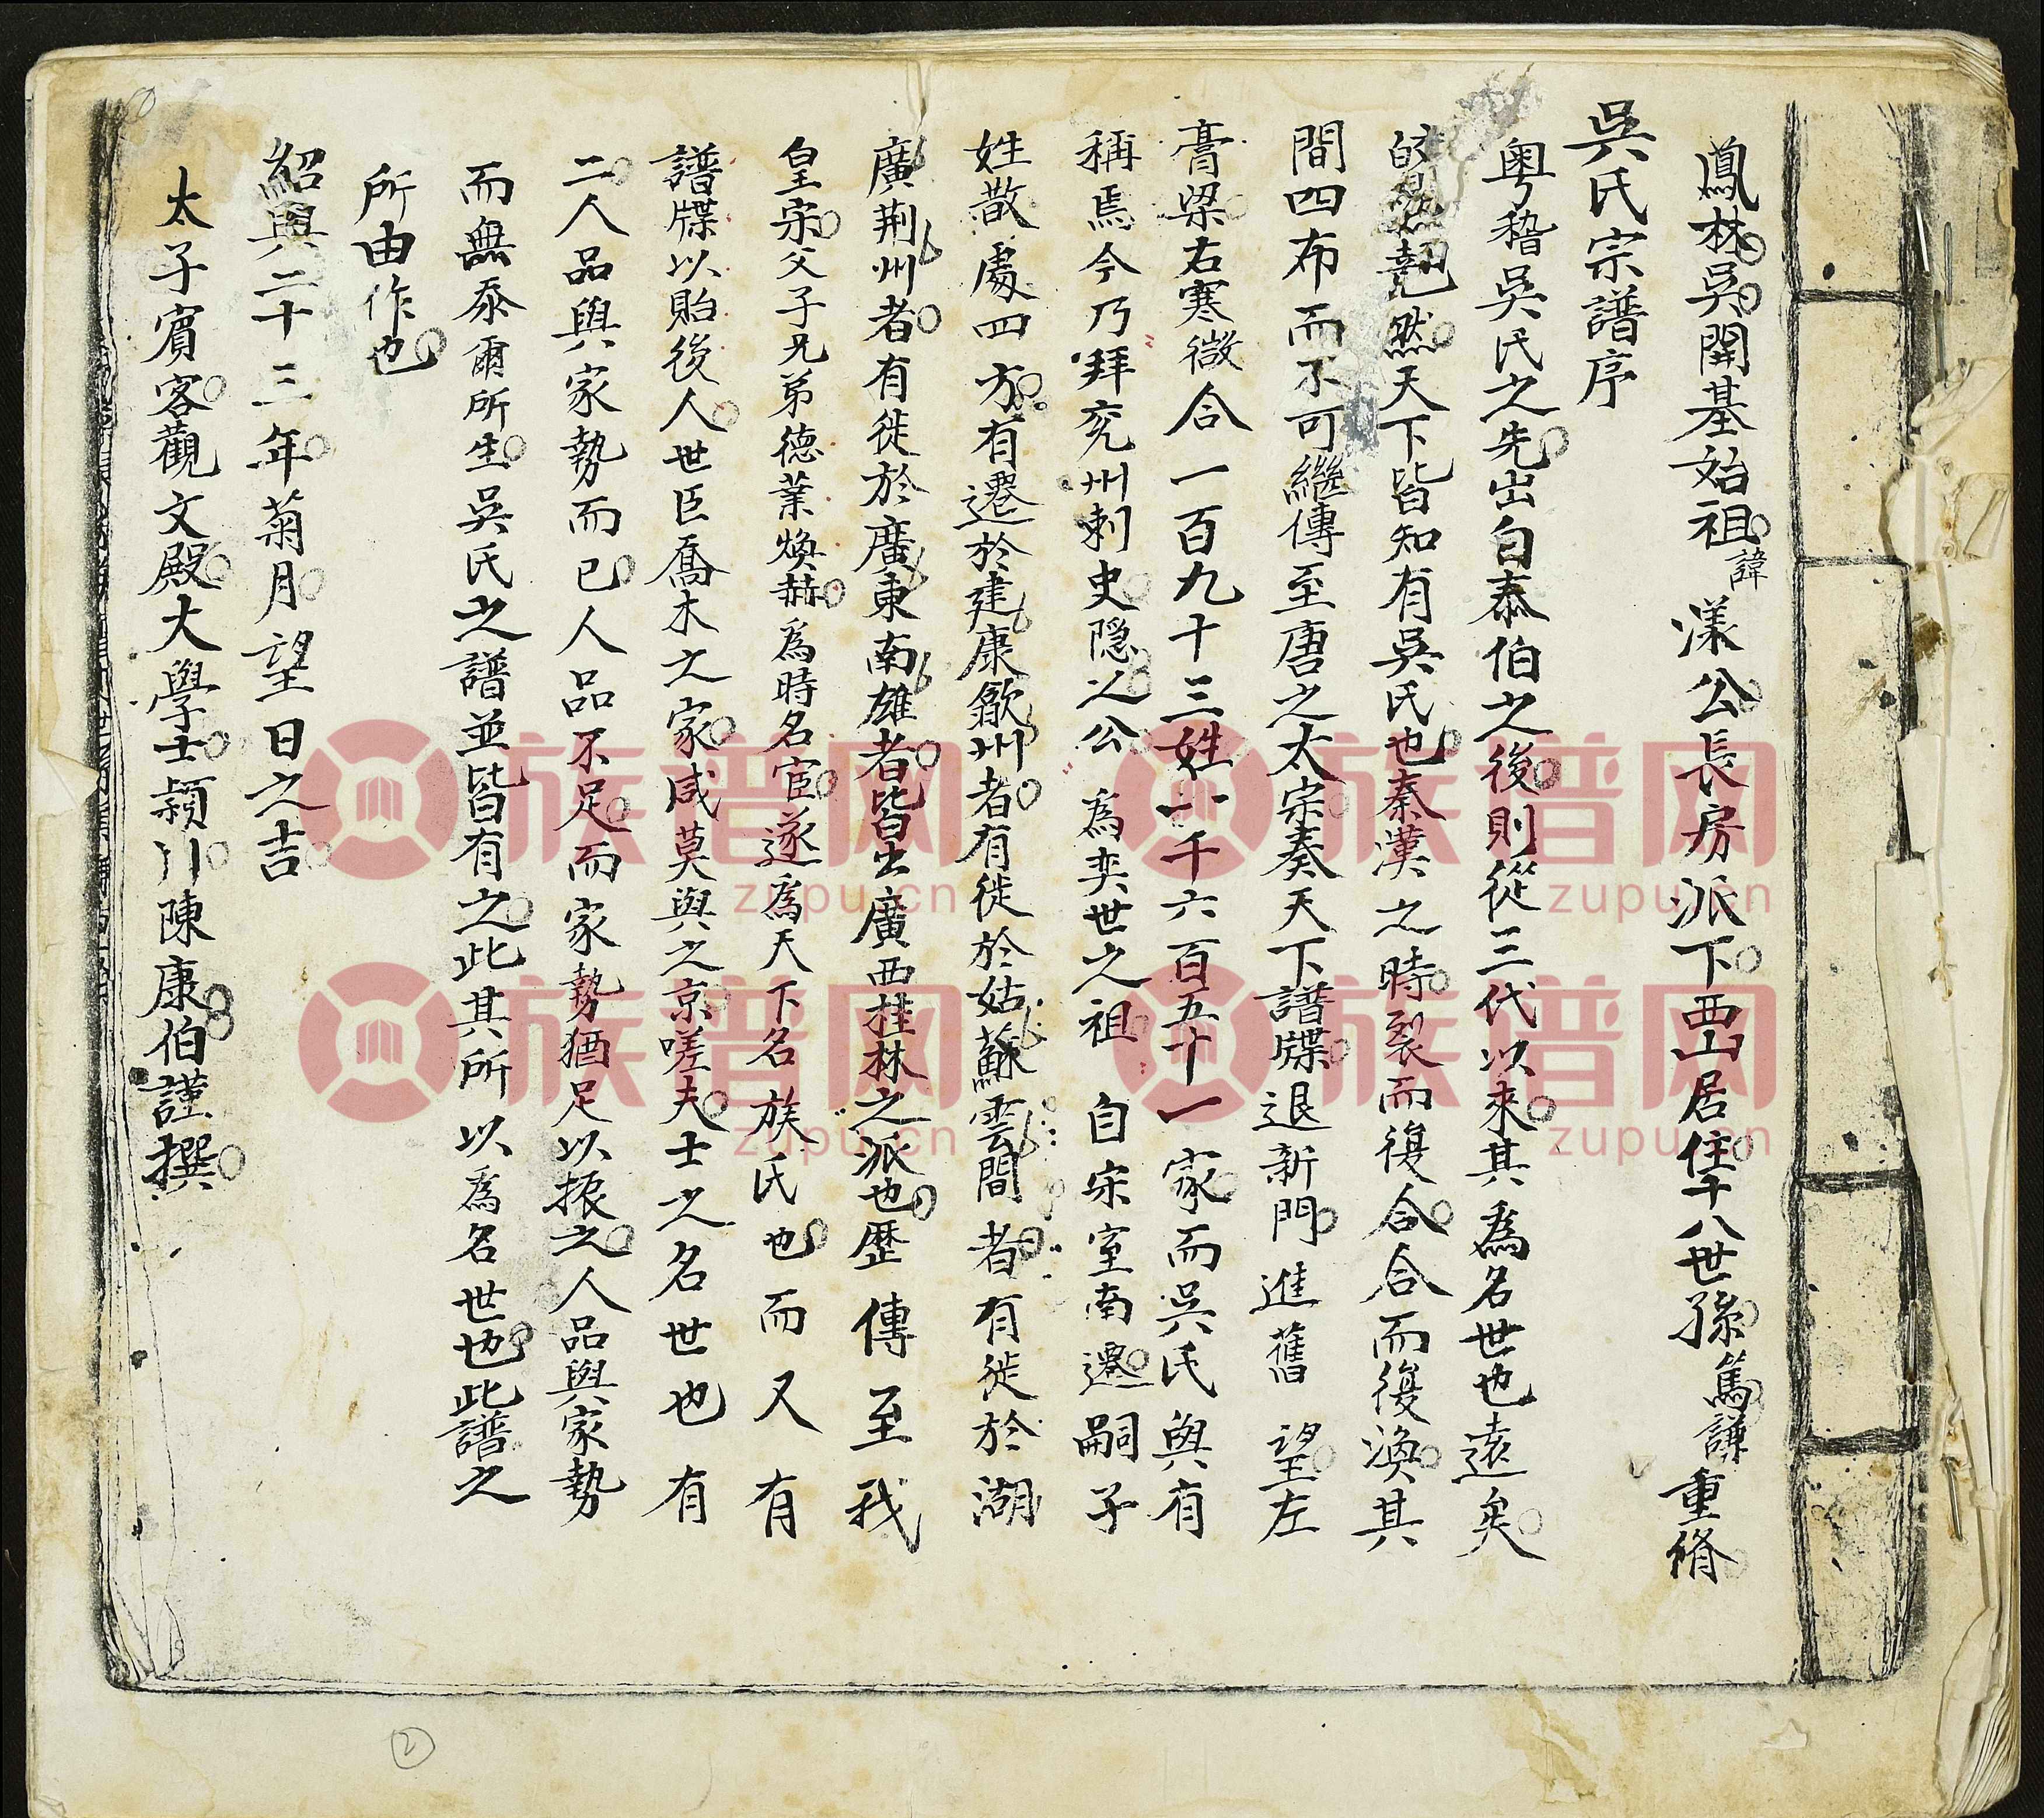 鳳林吳開基始祖諱漾公長房派下西山居住十八世孫篤謙重脩
吳氏宗譜序
粤稽吳氏之先出自泰伯之後則從三代以來其為名世也遠矣
然天下皆知有吳氏也秦漢之時裂而復合合而復渙其
間四布而不可繼傳至唐之太宗奏天下譜牒退新門進舊望左
膏梁右寒微合一百九十三姓一千六百五十一家而吳氏與有
稱焉今乃拜兖州刺史隐之公為奕世之祖自宋室南遷嗣子
姓散處四方有遷於建康歙州者有徙於姑蘇雲間者有徙於湖
廣荆州者有徙於廣東南雄者皆出廣西桂林之派也歷傳至我
皇宋父子兄弟德業煥赫為時名宦遂為天下名族氏也而又有
譜牒以貽後人世臣喬木之家咸莫與之京嗟夫士之名世也有
二人品與家勢而已人品不足而家勢猶足以振之人品與家勢
而無忝爾所生吳氏之譜並皆有之此其所以為名世也此譜之
所由作也
紹興二十三年菊月望日之吉
太子賓客觀文殿大學士颍川陳康伯謹撰
2
族谱网
zupu.cn
族谱网
zupu.cn
族谱网
zupu.cn
族谱网
zupu.cn